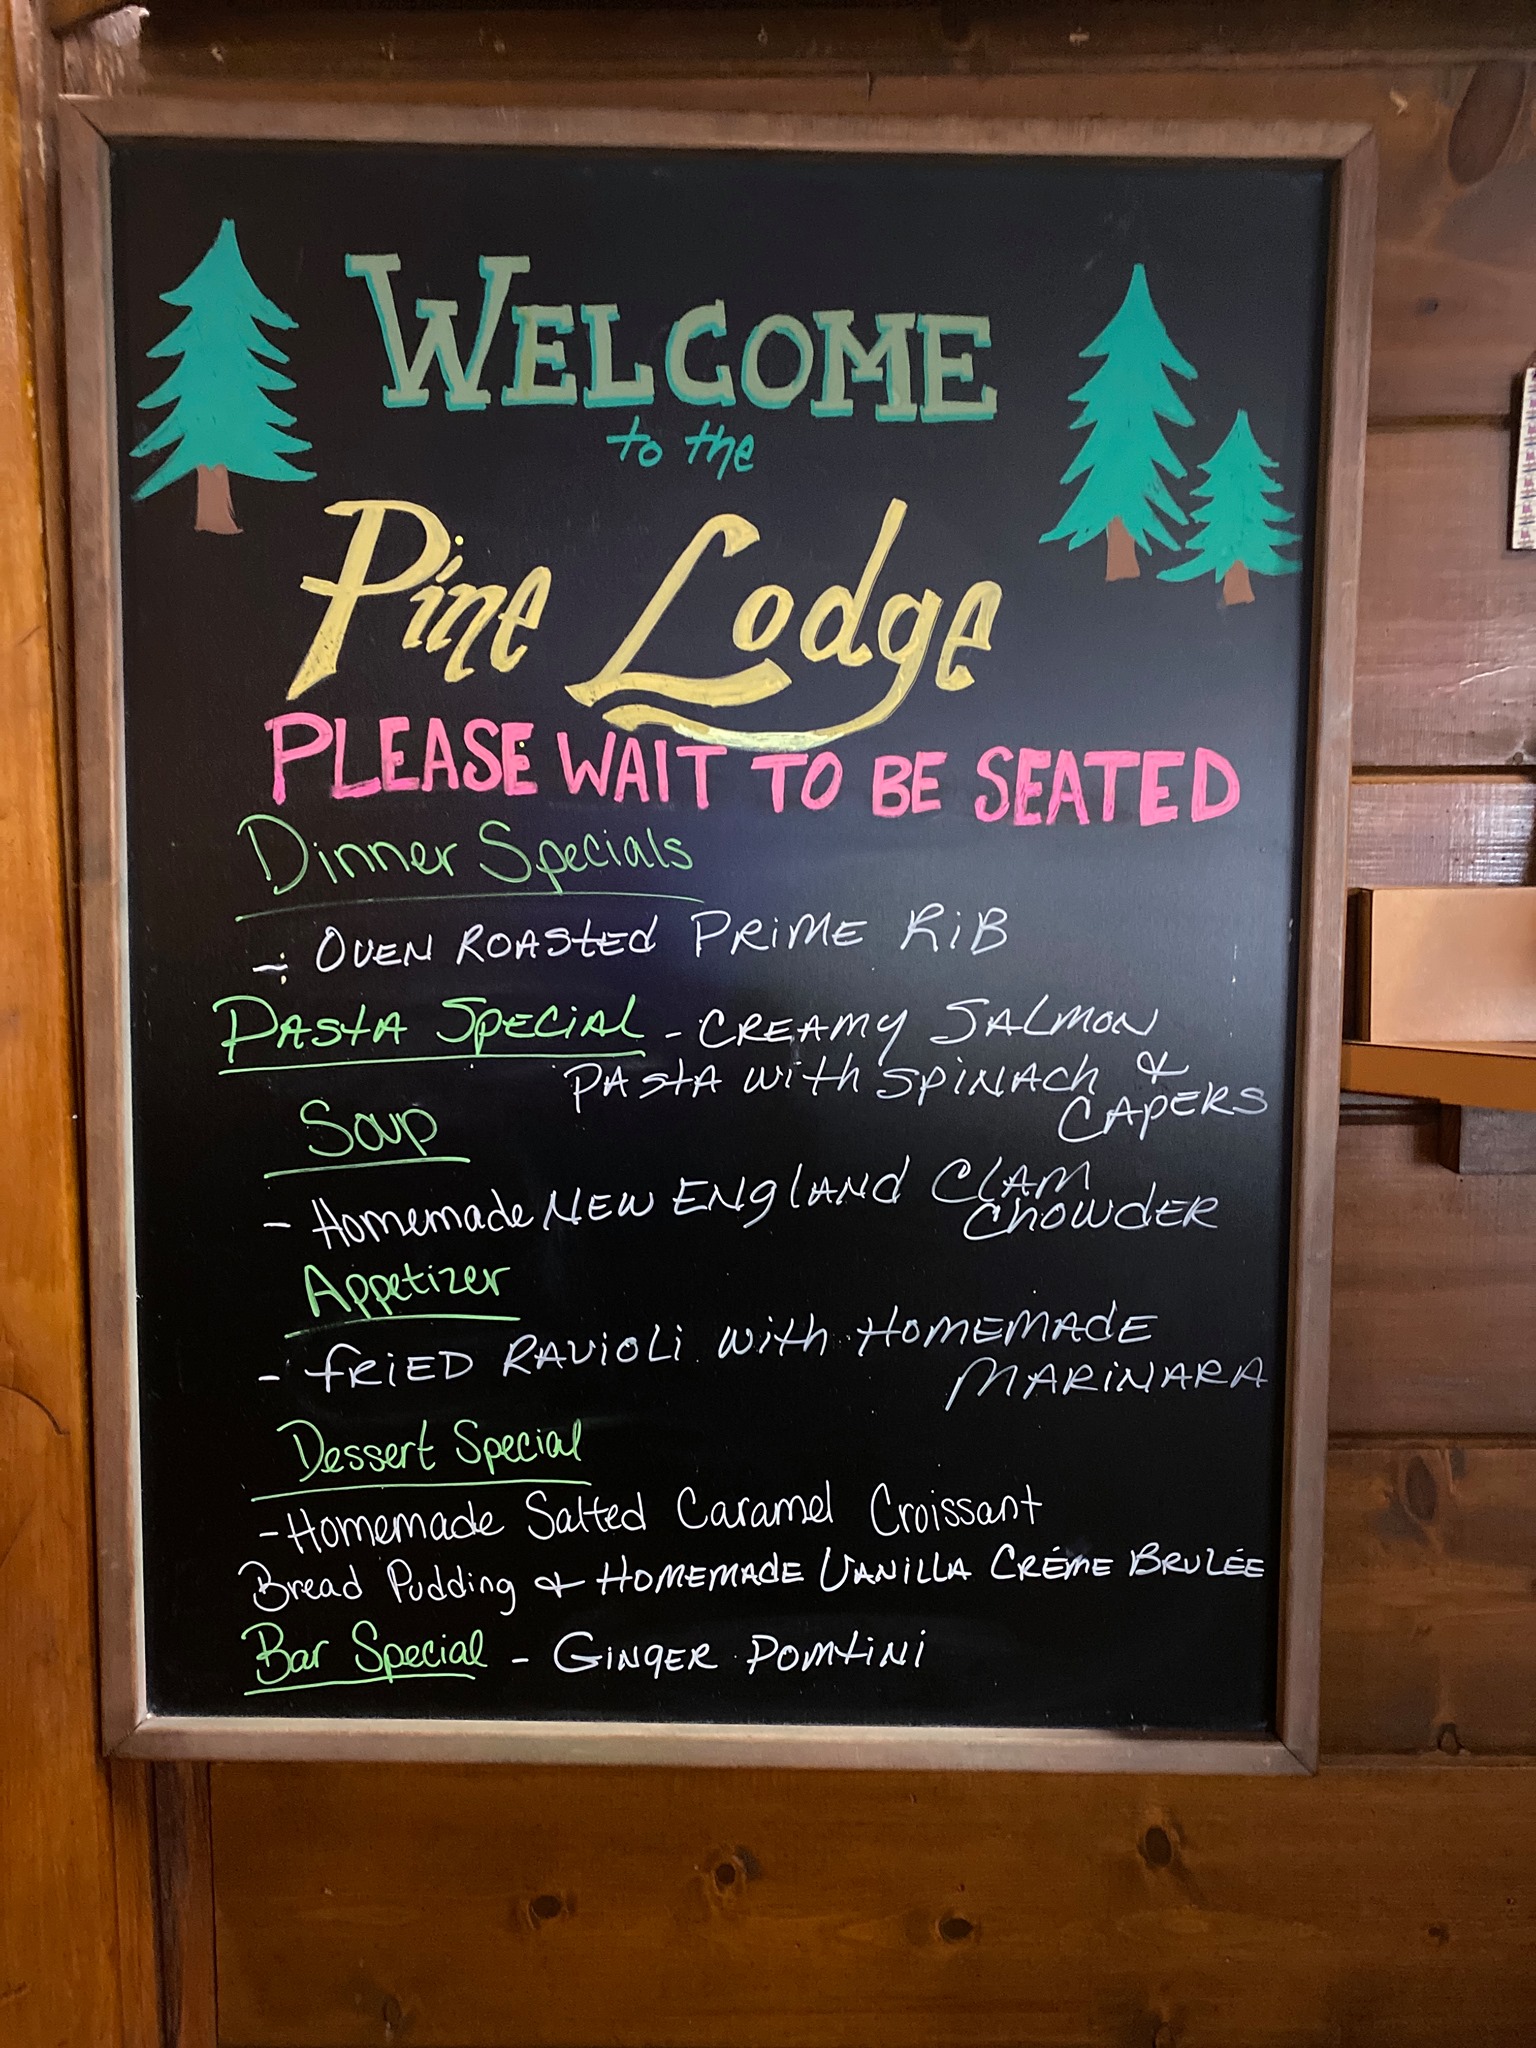 WELCOME
to the
Pine Lodge
PLEASE WAIT TO BE SEATED
Dinner Specials
- OVEN ROASTED PRIME RIB
PASTA SPECIAL - CREAMY SALMON
PASTA WITH SPINACH &
CAPERS
Soup
- Homemade NEW ENGLAND CLAM
CHOWDER
Appetizer
- FRIED RAVIOLI WITH HOMEMADE
MARINARA
Dessert Special
- Homemade Salted Caramel Croissant
Bread Pudding & HOMEMADE VANILLA CRÉME BRULÉE
Bar Special - GINGER POMTINI